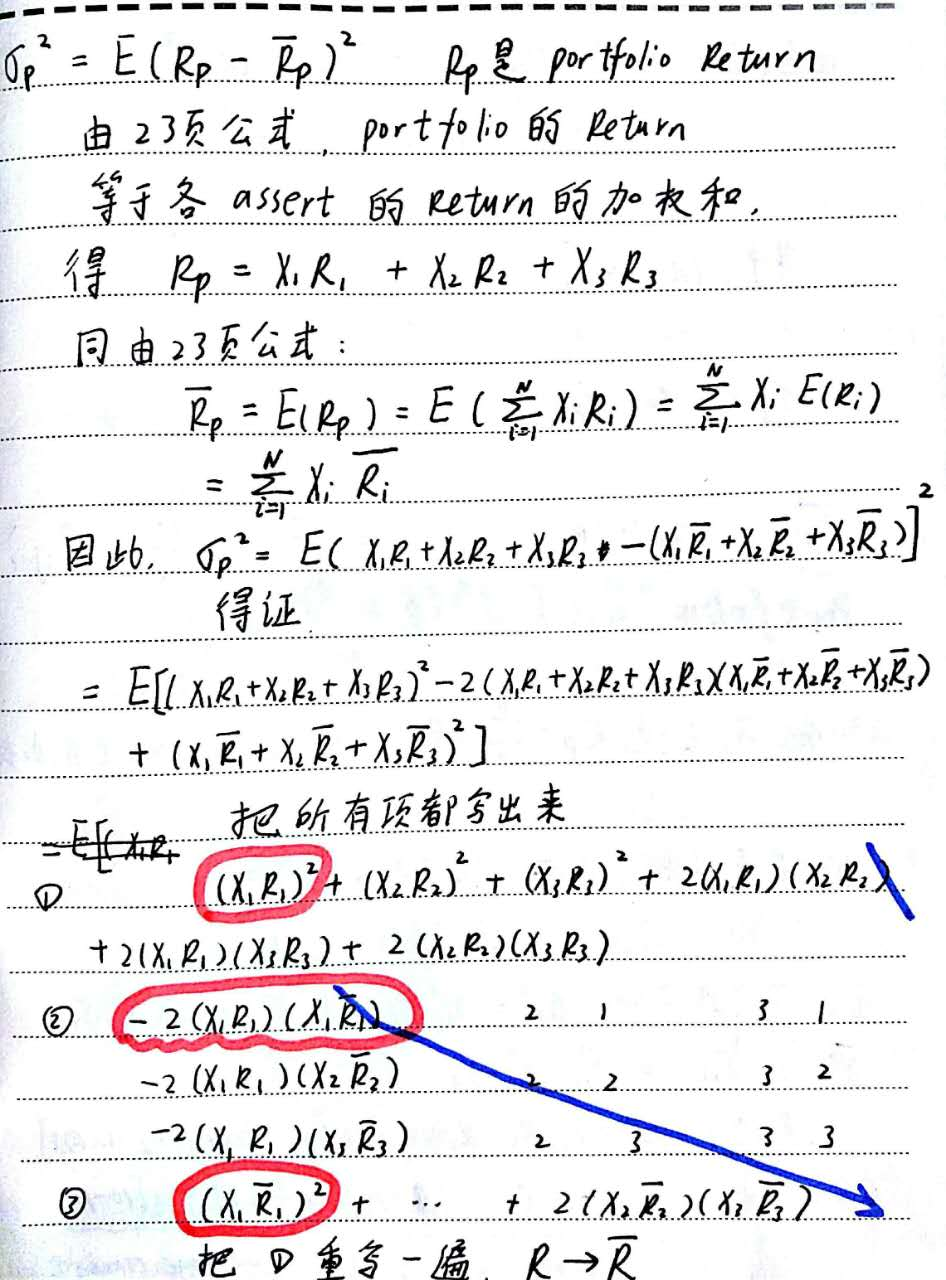 σp² = E(Rp - R̅p)² Rp是 portfolio Return
由23页公式, portfolio的Return
等于各 assert 的 Return 的加权和,
得 Rp = X₁R₁ + X₂R₂ + X₃R₃
同由23页公式:
R̅p = E(Rp) = E(∑ᵢ₌₁ᴺ XᵢRᵢ) = ∑ᵢ₌₁ᴺ Xᵢ E(Rᵢ)
= ∑ᵢ₌₁ᴺ Xᵢ R̅ᵢ
因此, σp² = E( X₁R₁+X₂R₂+X₃R₃ -(X₁R̅₁+X₂R̅₂+X₃R̅₃)]²
得证
= E[(X₁R₁+X₂R₂+X₃R₃)²-2(X₁R₁+X₂R₂+X₃R₃)(X₁R̅₁+X₂R̅₂+X₃R̅₃)
+ (X₁R̅₁+X₂R̅₂+X₃R̅₃)²]
把所有项都写出来
= E[(X₁R₁
① (X₁R₁)² + (X₂R₂)² + (X₃R₃)² + 2(X₁R₁)(X₂R₂)
+ 2(X₁R₁)(X₃R₃) + 2(X₂R₂)(X₃R₃)
② -2(X₁R₁)(X₁R̅₁) 2 1 3 1
-2(X₁R₁)(X₂R̅₂) 2 2 3 2
-2(X₁R₁)(X₃R̅₃) 2 3 3 3
③ (X₁R̅₁)² + ·· + 2(X₂R̅₂)(X₃R̅₃)
把①重写一遍, R → R̅